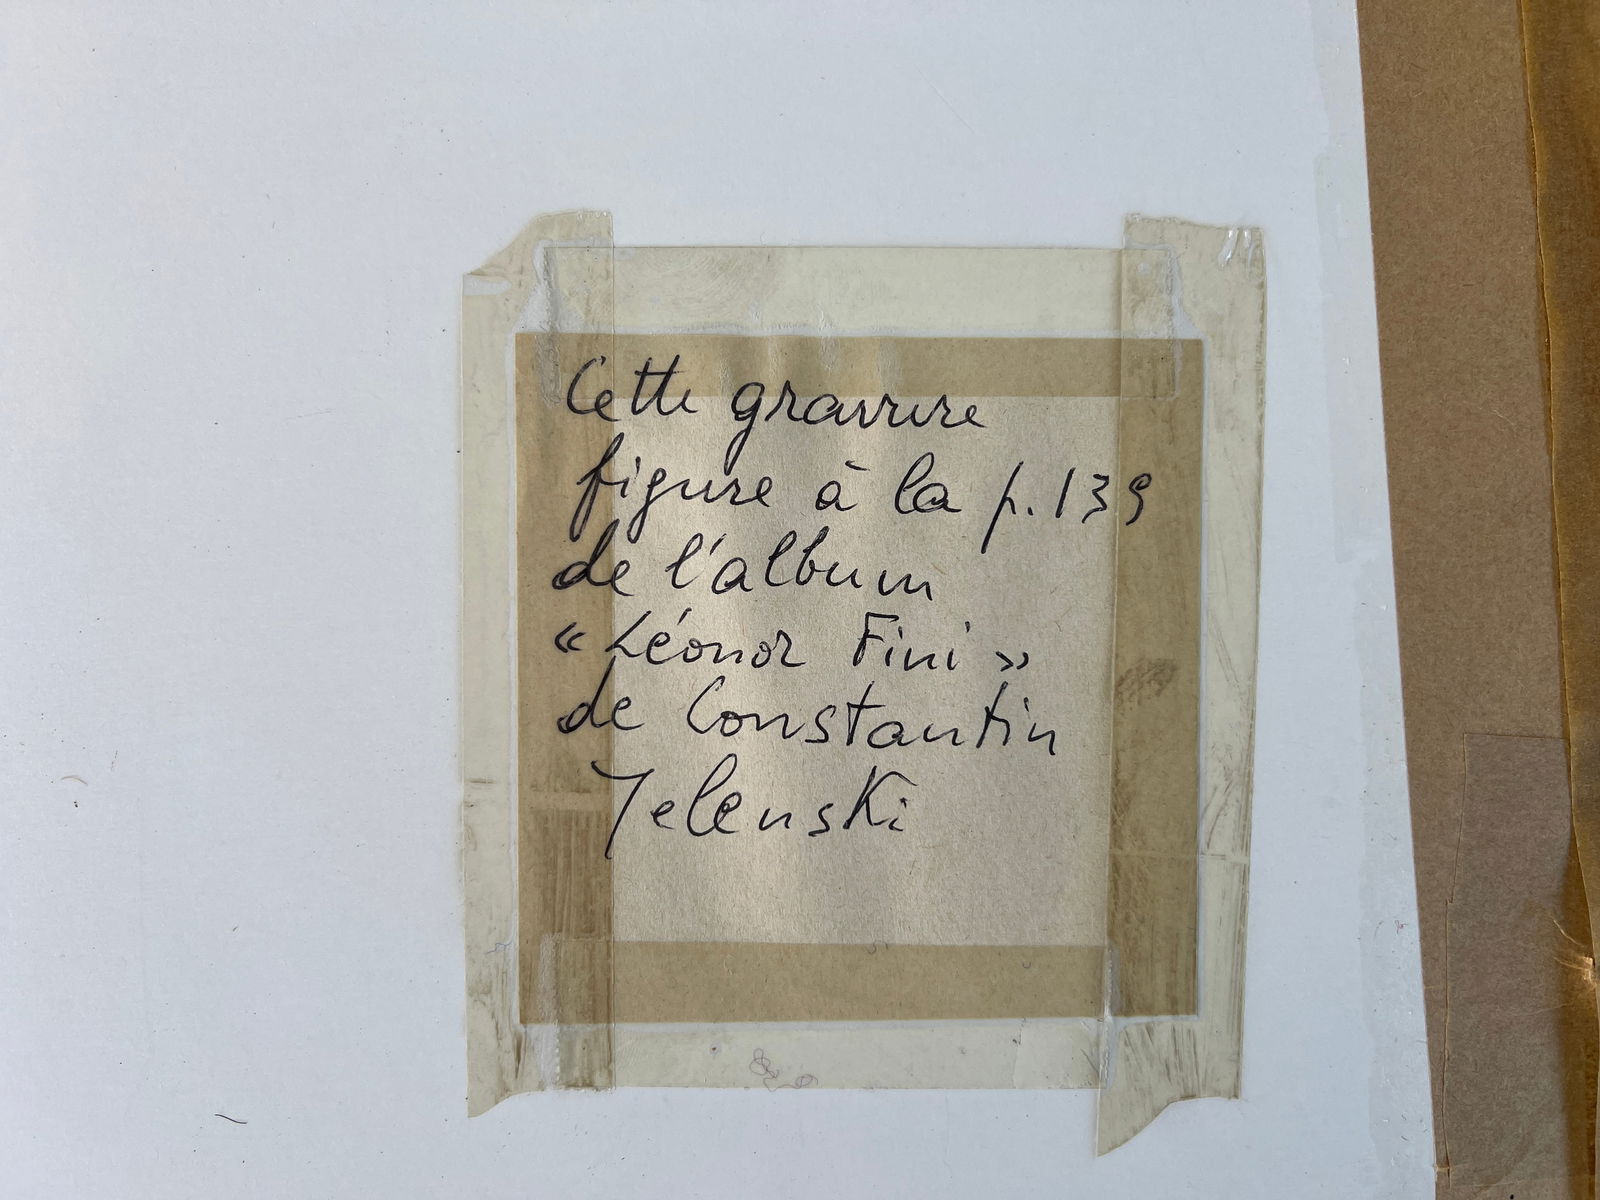 Cette gravure
figure à la p. 139
de l'album
« Léonor Fini »
de Constantin
Jelenski